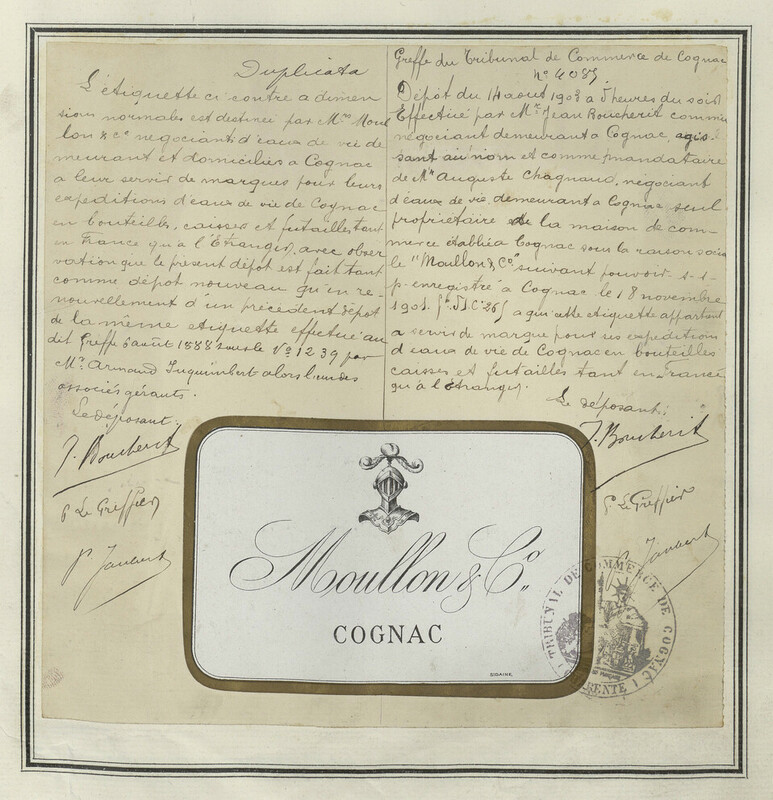 Duplicata
L'étiquette ci contre a dimen
sions normales est destinée par Mrs Moul
lon & Cie négociants d'eaux de vie de
meurant et domiciliés a Cognac
a leur servir de marques pour leurs
expéditions d'eaux de vie de Cognac
en bouteilles, caisses et futailles tant
en France qu'à l'Etranger, avec obser
vation que le présent dépôt est fait tant
comme dépôt nouveau qu'en re-
nouvellement d'un précédent dépôt
de la même étiquette effectué au
dit Greffe 6 août 1888 sous le No 1239 par
Mr. Armand Inquimbert alors l'un des
associés gérants.
Le déposant:
J. Boucherit
P Le Greffier
P. Jaubert
Greffe du Tribunal de Commerce de Cognac
No 4085
Dépôt du 14 août 1903 à 5 heures du soir
Effectué par Mr. Jean Boucherit commis
négociant demeurant a Cognac, agis-
sant au nom et comme mandataire
de Mr Auguste Chagnaud, négociant
d'eaux de vie demeurant a Cognac seul
propriétaire de la maison de com-
merce établie a Cognac sous la raison socia
le "Moullon & Co" suivant pouvoir s-s-
p- enregistré a Cognac le 18 novembre
1901 a qui cette étiquette appartient
a servir de marque pour ses expéditions
d'eaux de vie de Cognac en bouteilles
caisses et futailles tant en France
qu'à l'étranger.
Le déposant:
J. Boucherit
P. Le Greffier
P. Jaubert
Moullon & Co.
COGNAC
SIGAIRE.
TRIBUNAL DE COMMERCE DE COGNAC